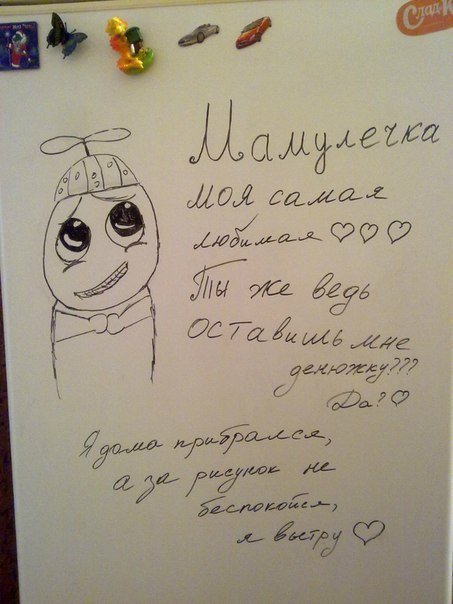 Слад-К
Мамулечка
моя самая
любимая ♡♡♡
Ты же ведь
оставишь мне
денюжку???
Да?♡
Я дома прибрался,
а за рисунок не
беспокойся,
я вытру ♡